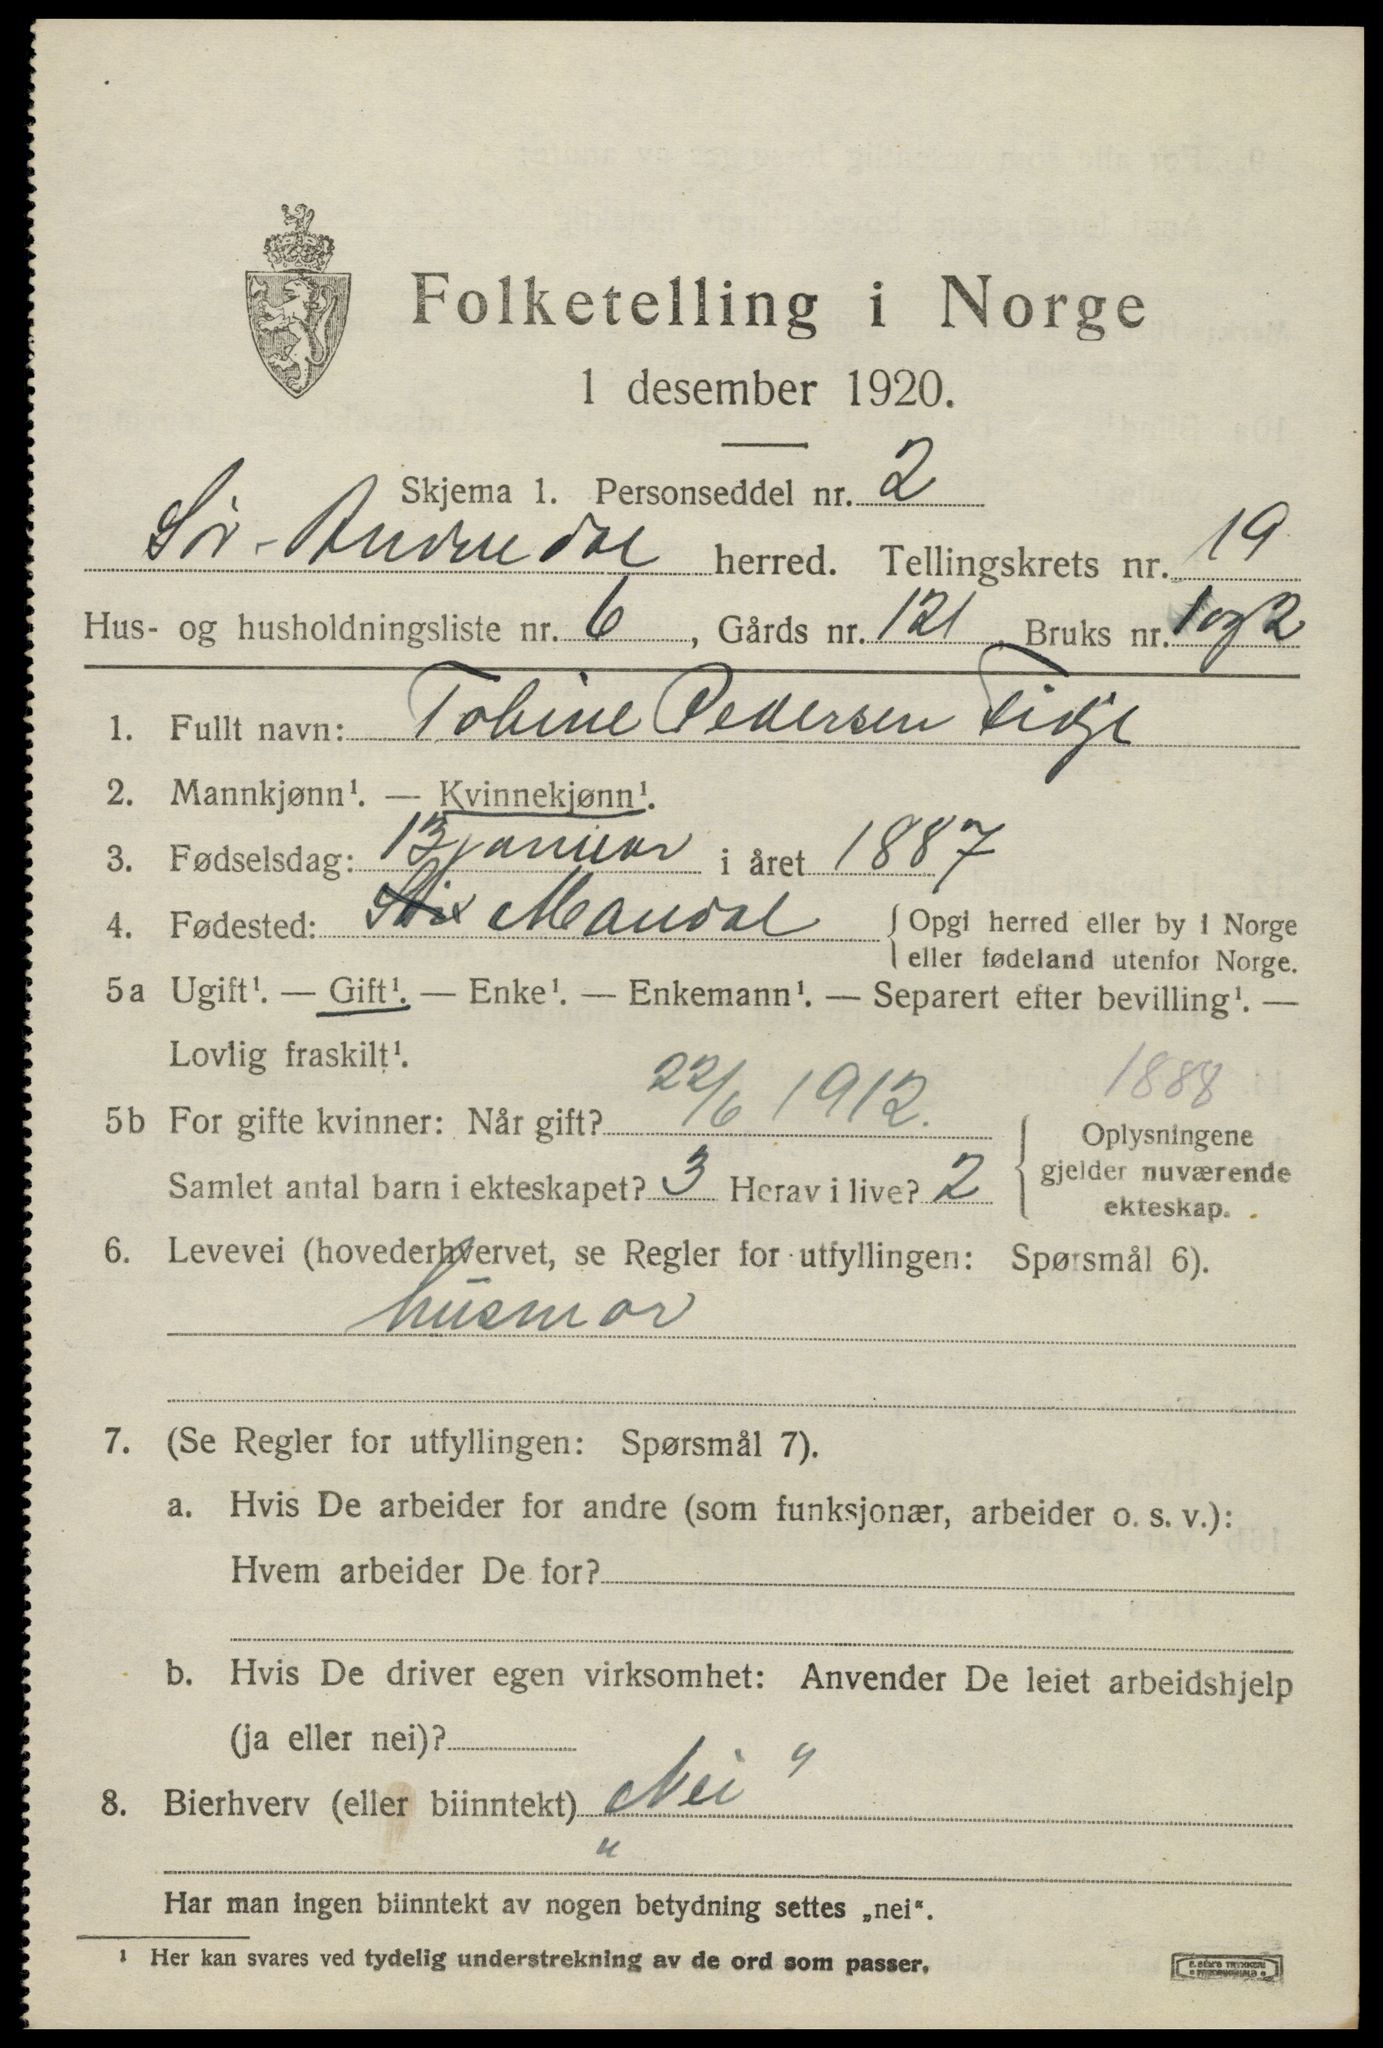 Folketelling i Norge
1 desember 1920.
Skjema 1. Personseddel nr. 2
Sör-Audnedal herred. Tellingskrets nr. 19
Hus- og husholdningsliste nr. 6, Gårds nr. 121, Bruks nr. 1og2
1. Fullt navn: Tobine Pedersen Fidje
2. Mannkjønn¹. — Kvinnekjønn¹.
3. Fødselsdag: 13 januar i året 1887
4. Fødested: Mandal { Opgi herred eller by i Norge
eller fødeland utenfor Norge.
5a Ugift¹. — Gift¹. — Enke¹. — Enkemann¹. — Separert efter bevilling¹. —
Lovlig fraskilt¹.
1888
5b For gifte kvinner: Når gift? 22/6 1912.
Samlet antal barn i ekteskapet? 3 Herav i live? 2
{ Oplysningene
gjelder nuværende
ekteskap.
6. Levevei (hovederhvervet, se Regler for utfyllingen: Spørsmål 6).
husmor
7. (Se Regler for utfyllingen: Spørsmål 7).
a. Hvis De arbeider for andre (som funksjonær, arbeider o. s. v.):
Hvem arbeider De for?
b. Hvis De driver egen virksomhet: Anvender De leiet arbeidshjelp
(ja eller nei)?
8. Bierhverv (eller biinntekt) „Nei"
Har man ingen biinntekt av nogen betydning settes „nei“.
¹ Her kan svares ved tydelig understrekning av de ord som passer.